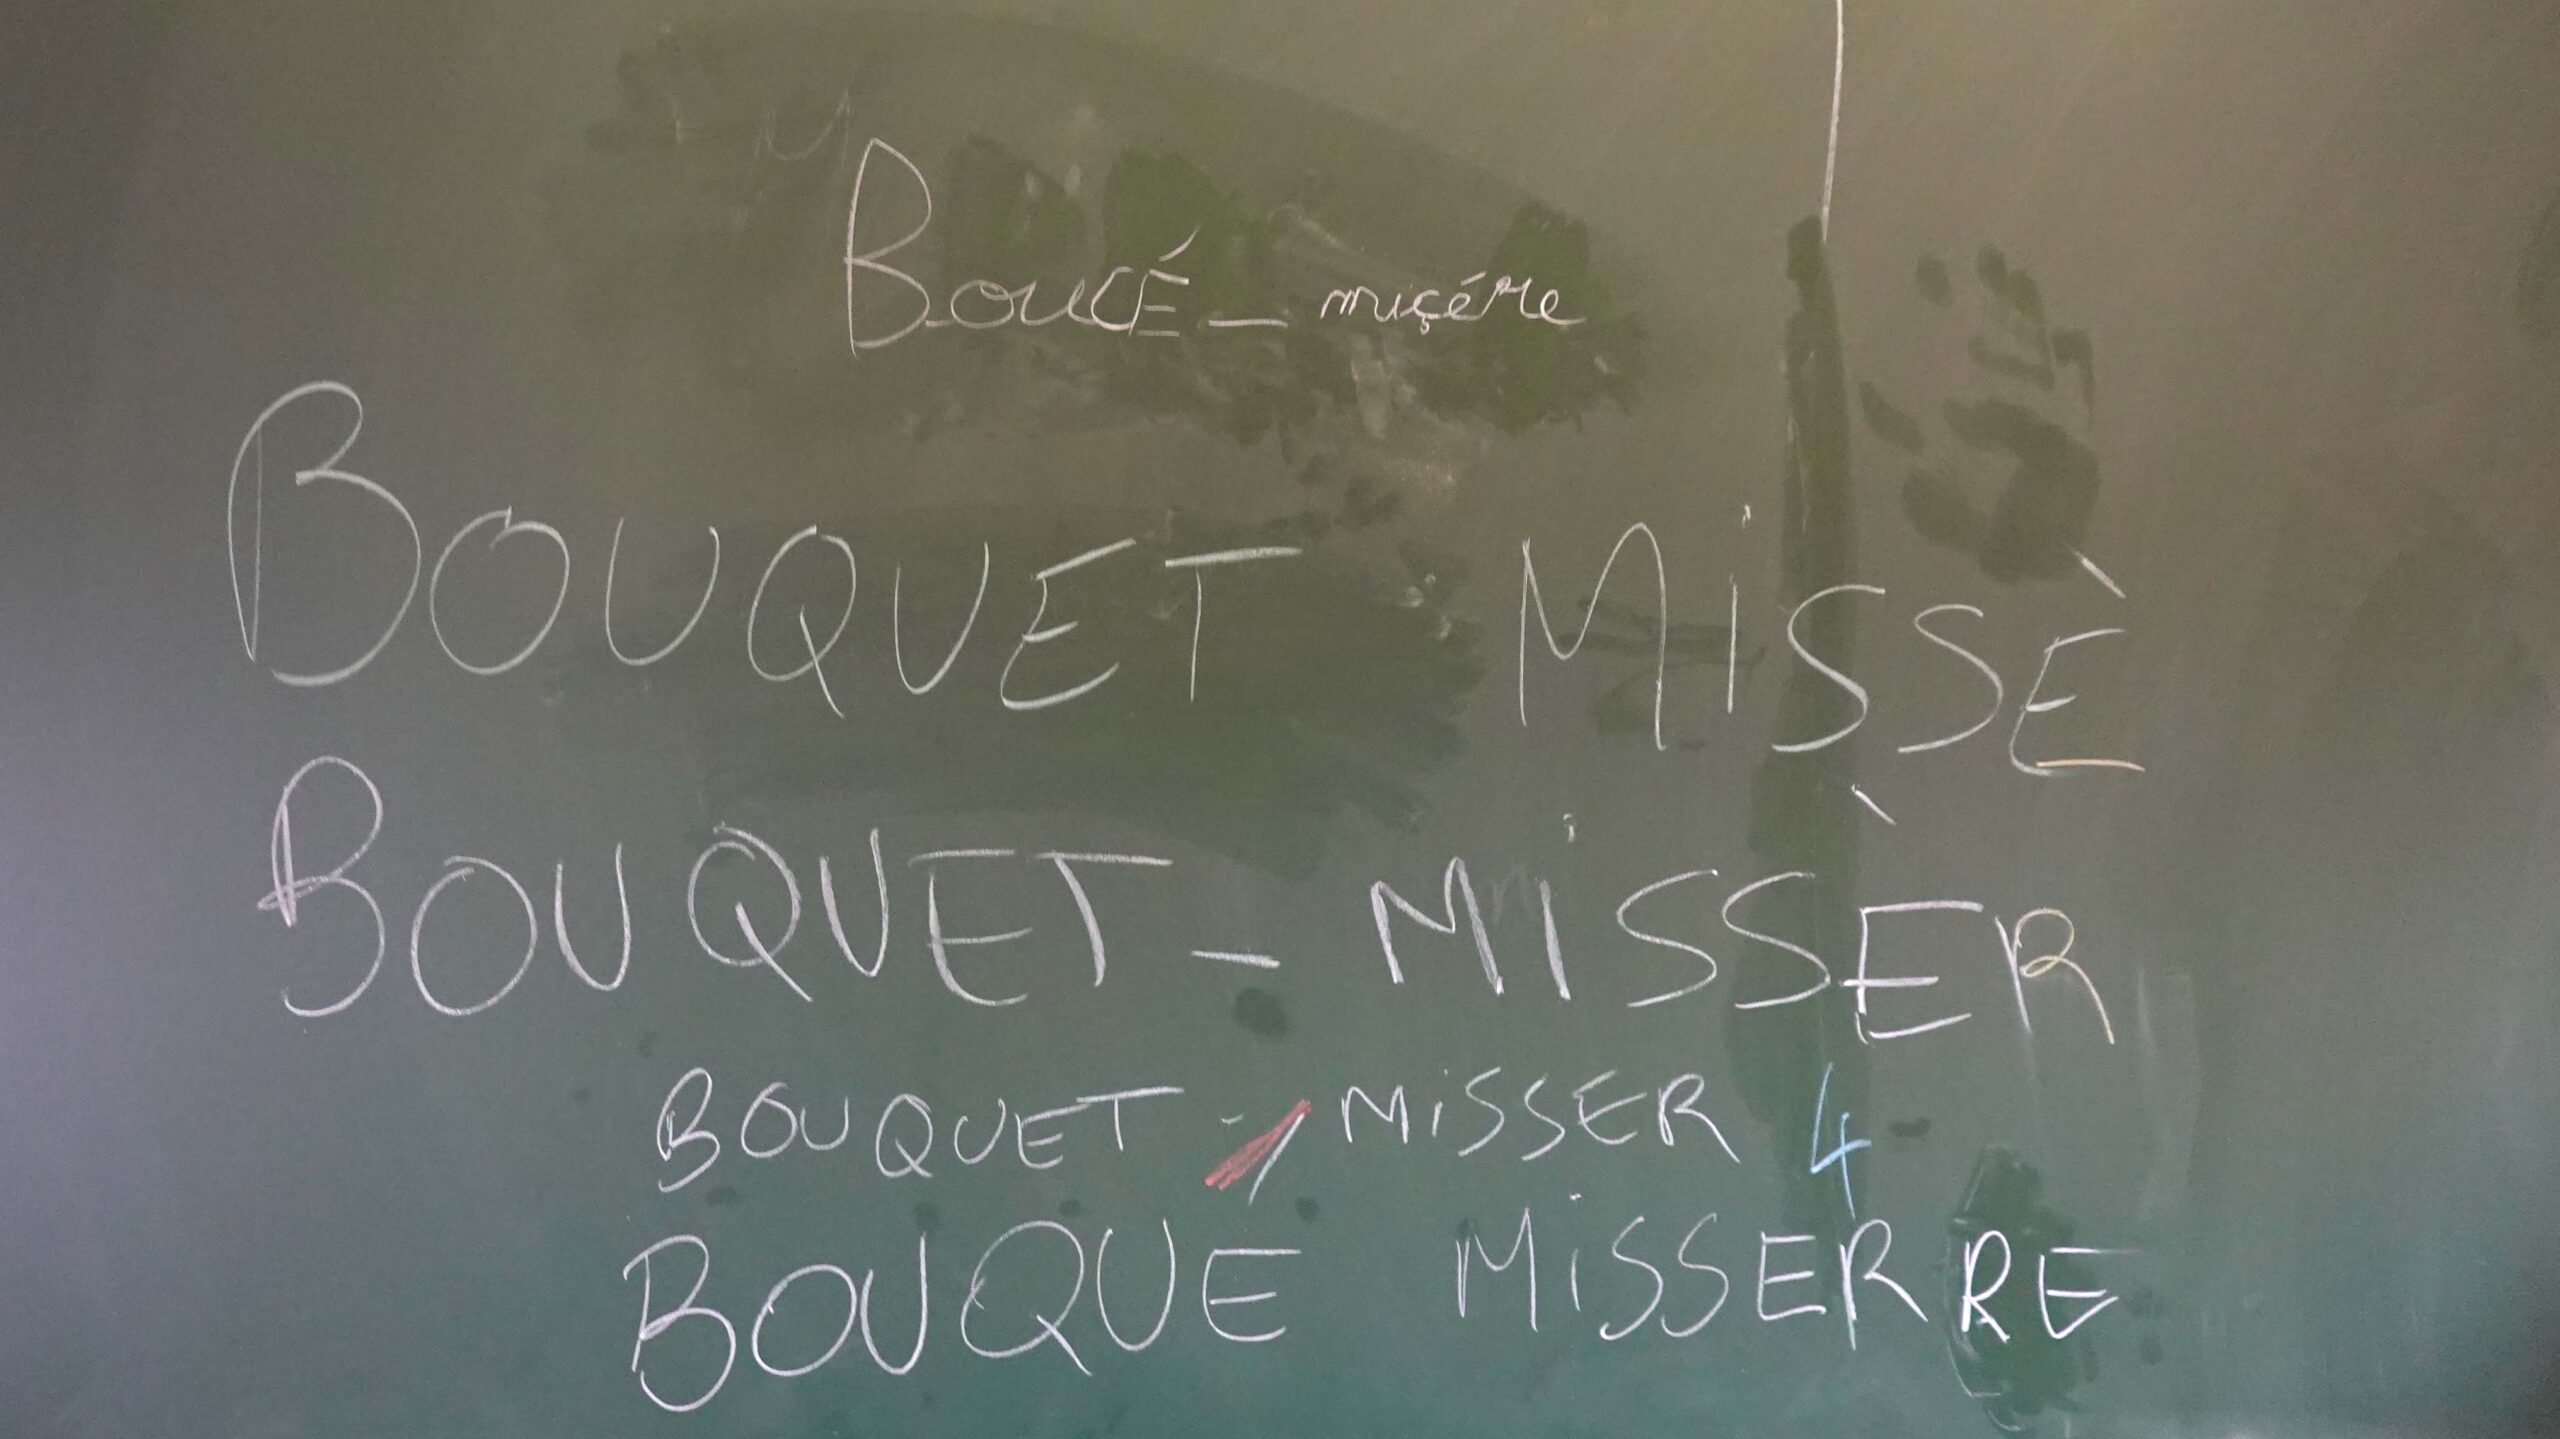 BoucÉ - miçére
BOUQUET MiSSÈ
BOUQUET - MiSSÈR
BOUQUET - MiSSER 4
BOUQUE MiSSERRE